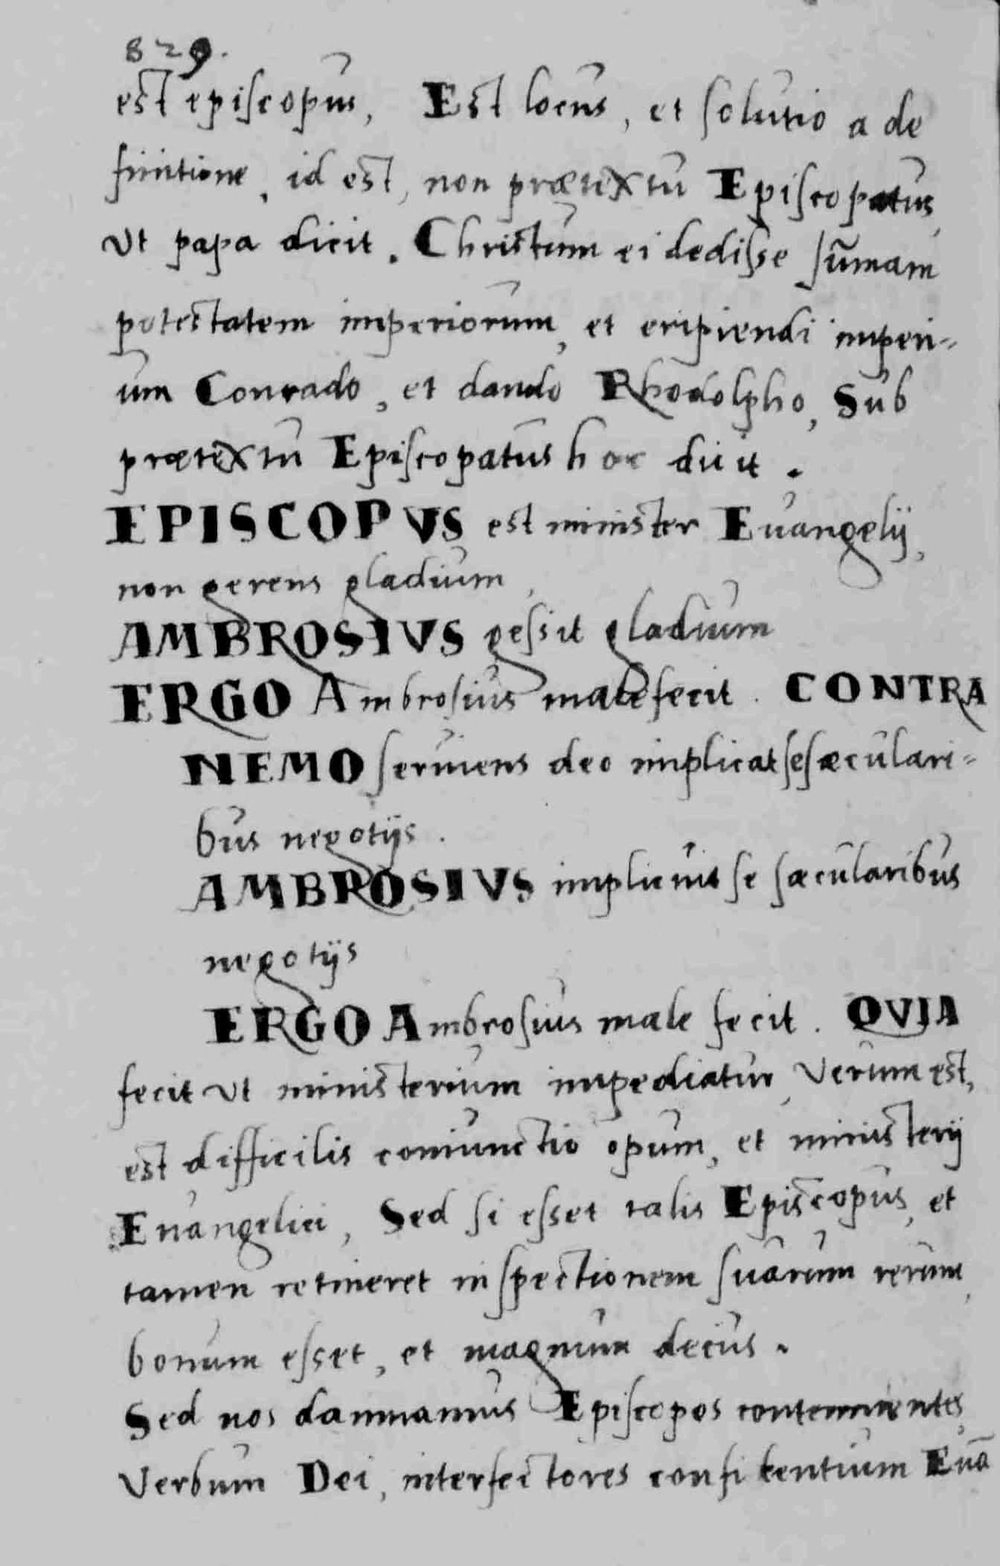 829.
est episcopus, Est locus, et solutio a de
finitione, id est, non prætextu Episcopatus,
Ut papa dicit. Christum ei dedisse sūmam
potestatem imperiorum, et eripiendi imperi=
um Conrado, et dando Rhodolpho, Sub
prætextu Episcopatus hoc dicit.
EPISCOPVS est minister Euangelij,
non gerens gladium,
AMBROSIVS gessit gladium
ERGO Ambrosius male fecit. CONTRA
NEMO seruiens deo implicat se sæculari=
bus negotijs.
AMBROSIVS implicuit se sæcularibus
negotijs
ERGO Ambrosius male fecit. QVIA
fecit Ut ministerium impediatur, Verum est,
est difficilis coniunctio opum, et ministerij
Euangelici, Sed si esset talis Episcopus, et
tamen retineret inspectionem suarum rerum,
bonum esset, et magnum decus.
Sed nos damnamus Episcopos contemnentes
Verbum Dei, interfectores confitentium Euā